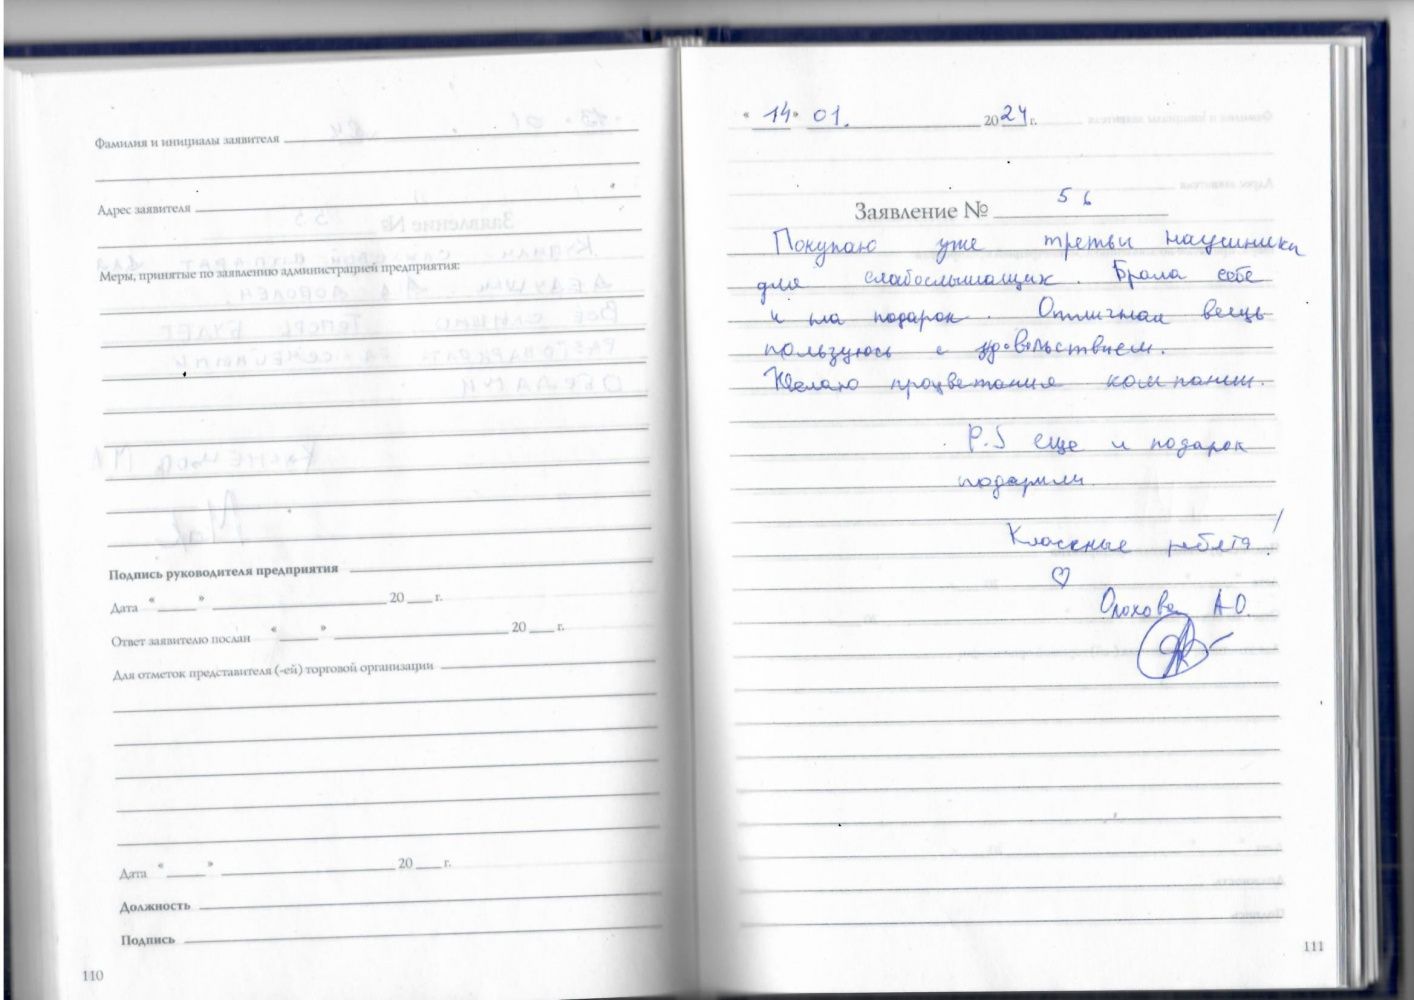 Фамилия и инициалы заявителя
Адрес заявителя
Меры, принятые по заявлению администрацией предприятия:
Подпись руководителя предприятия
Дата « » 20 г.
Ответ заявителю послан « » 20 г.
Для отметок представителя (-ей) торговой организации
Дата « » 20 г.
Должность
Подпись
110
« 14 » 01. 2024 г.
Заявление № 56
Покупаю уже третьи наушники
для слабослышащих. Брала себе
и на подарок. Отличная вещь
пользуюсь с удовольствием.
Желаю процветания компании.
P.S еще и подарок
подарили.
Классные ребята!
А.О.
111